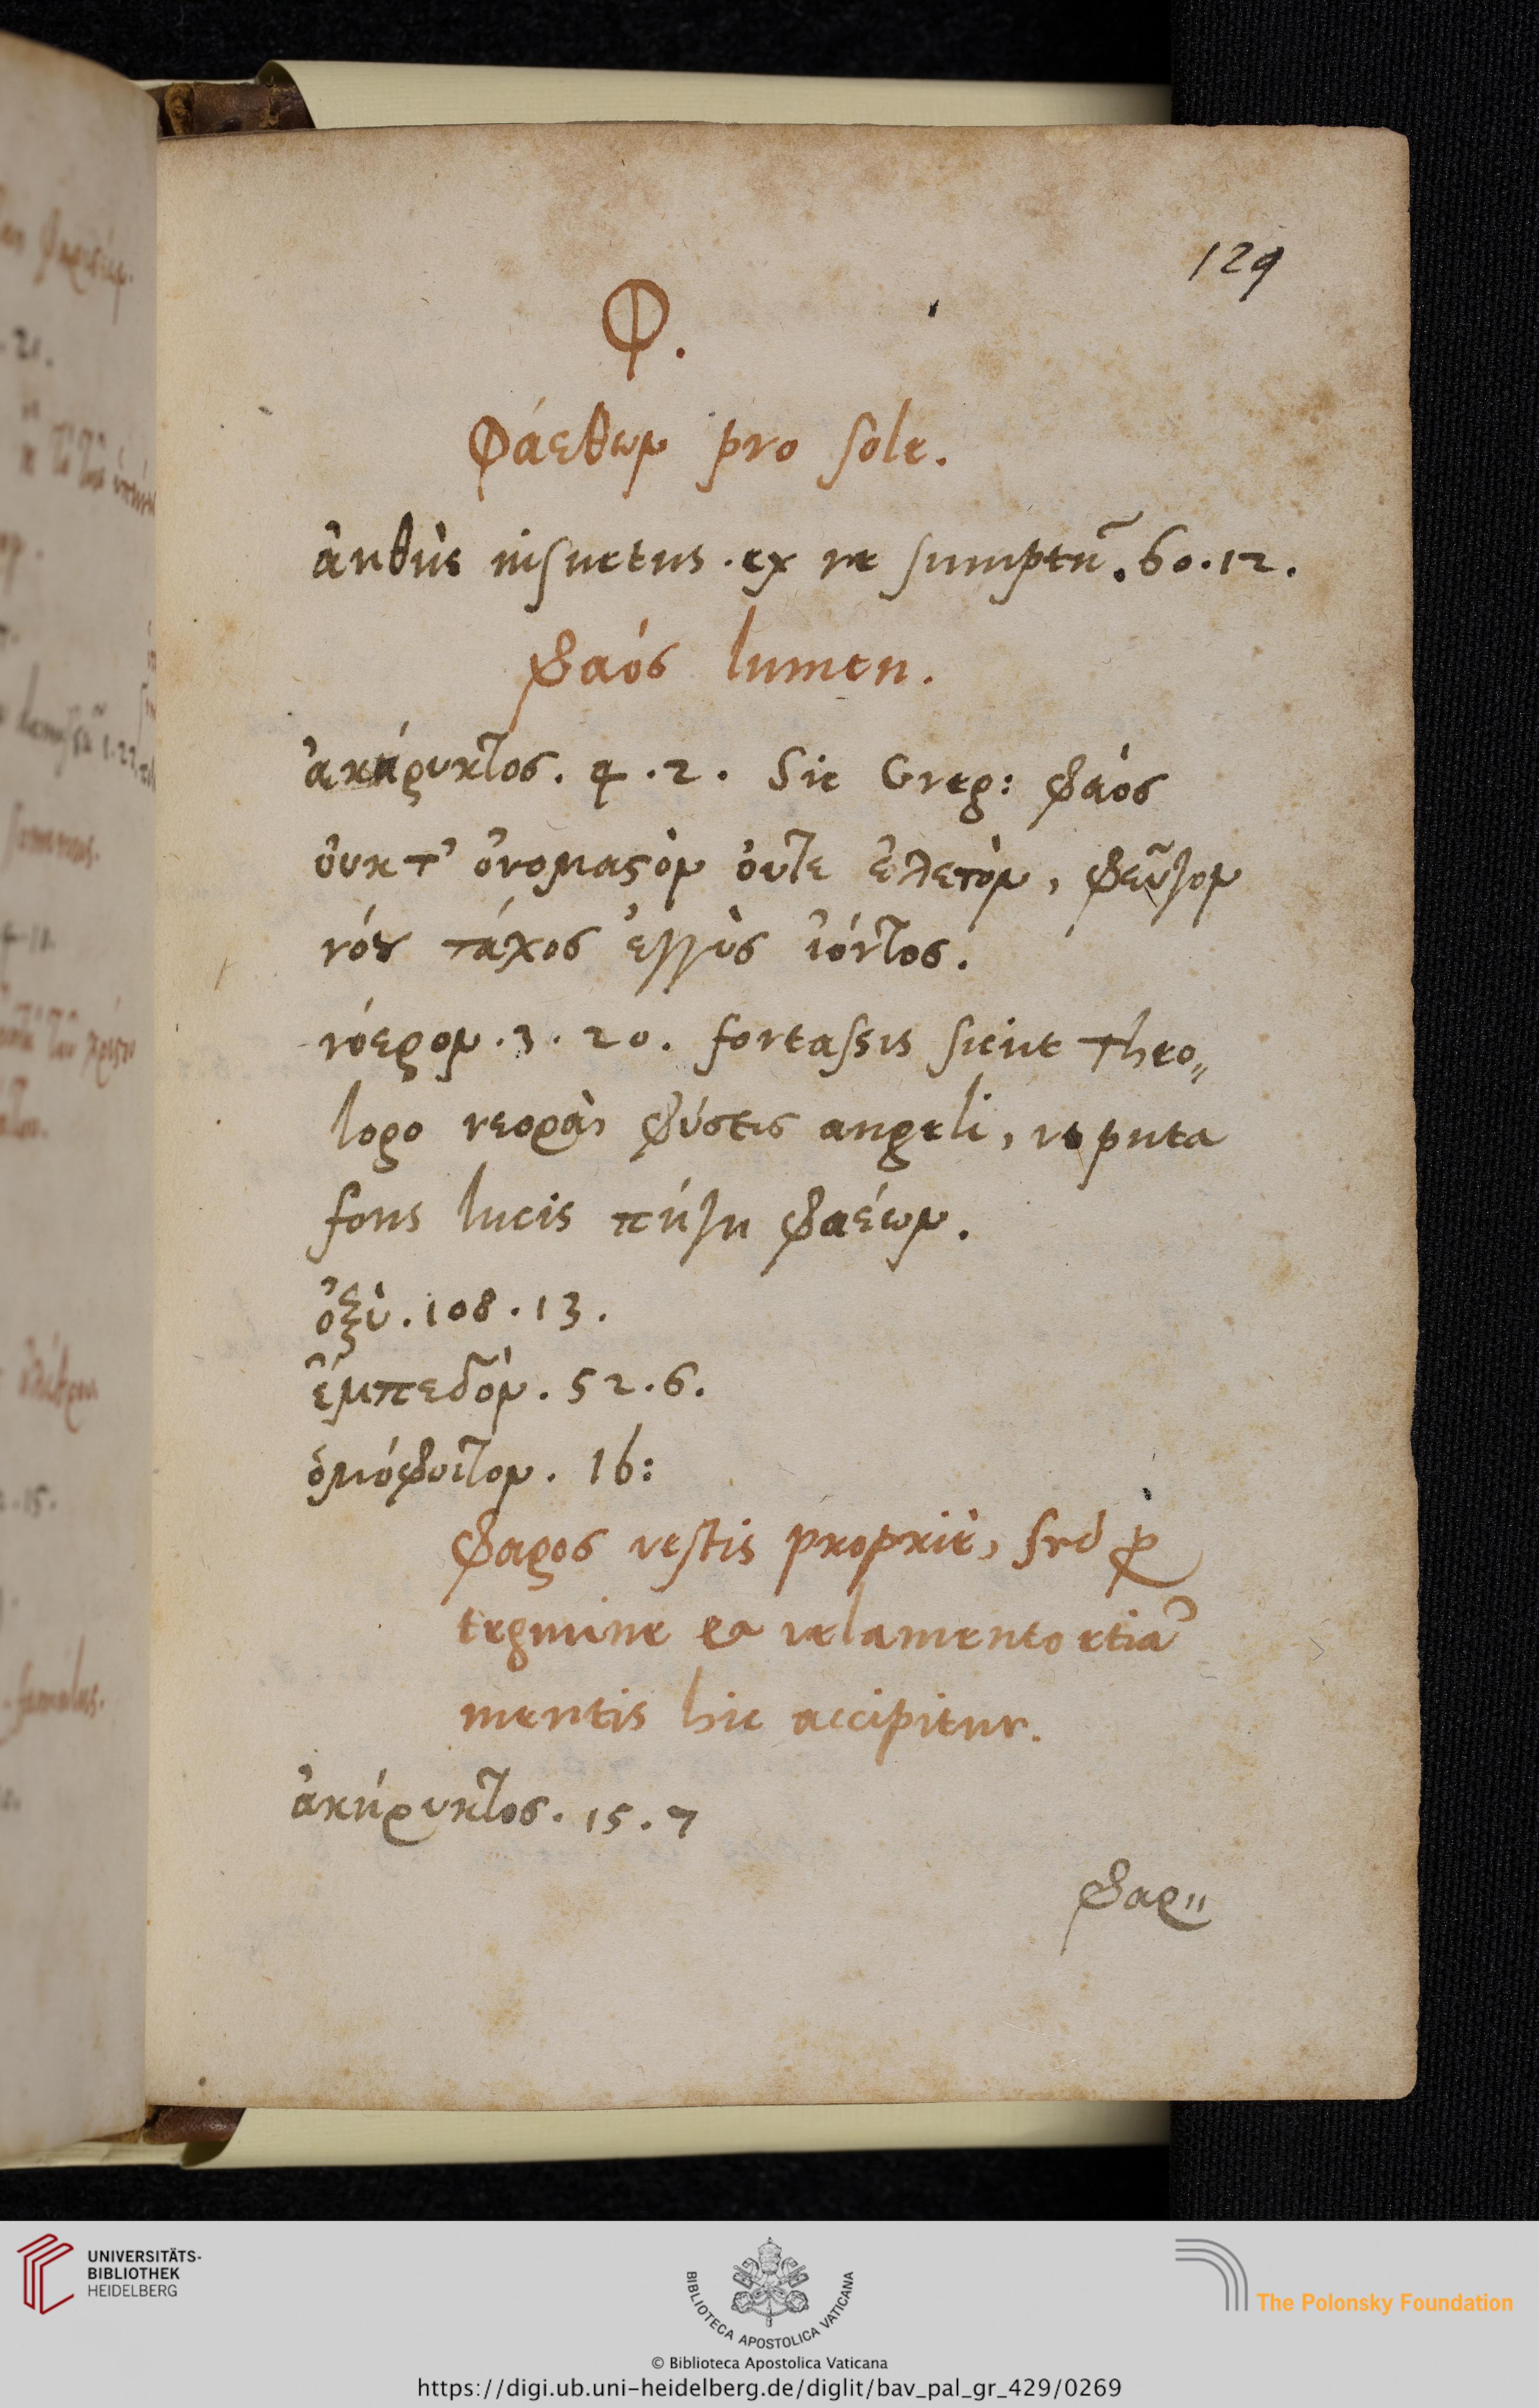 129
Φ.
Φάεθων pro sole.
ἀηθὴς insuetus. ex re sumptū. 60.12.
φαός lumen.
ἀκήρυκτος. 4.2. Sic Greg: φάος
οὐκ τ' ὀνομαςὸν οὔτε ἑλετὸν, φεῦγον
νόȣ τάχος ἐγγὺς ἰόντος.
νόερον. 3. 20. fortassis sicut Theo„
logo νεορὰ φύσις angeli, puta
fons lucis πήγη φαέων.
ὀξὺ. 108. 13.
ἔμπεδὸν. 52.6.
ὁμόφοιτον. Ib:
φαρος vestis propriè, sed ꝓ
tegmine & velamento etiā
mentis hic accipitur.
ἀκήρυκτος. 15.7
φαρ„
UNIVERSITÄTS-
BIBLIOTHEK
HEIDELBERG
BIBLIOTECA APOSTOLICA VATICANA
The Polonsky Foundation
© Biblioteca Apostolica Vaticana
https://digi.ub.uni-heidelberg.de/diglit/bav_pal_gr_429/0269